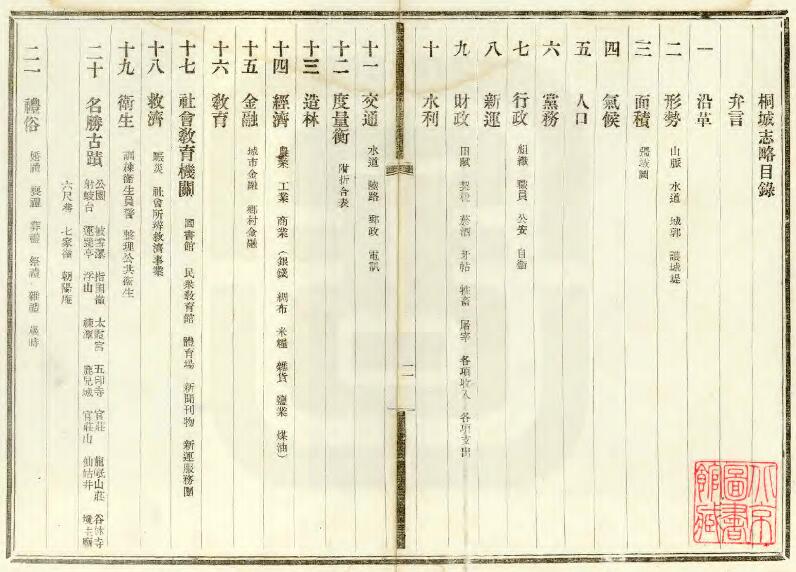 桐城志略目錄
弁言
一 沿革
二 形勢 山脈 水道 城郭 護城堤
三 面積 疆域圖
四 氣候
五 人口
六 黨務
七 行政 組織 職員 公安 自衞
八 新運
九 財政 田賦 契稅 菸酒 牙帖 牲畜 屠宰 各項收入 各項支出
十 水利
十一 交通 水道 陸路 郵政 電訊
十二 度量衡 附折合表
十三 造林
十四 經濟 農業 工業 商業(銀錢 綢布 米糧 雜貨 鹽業 煤油)
十五 金融 城市金融 鄉村金融
十六 教育
十七 社會教育機關 圖書館 民衆教育館 體育場 新聞刊物 新運服務團
十八 救濟 賑災 社會所辦救濟事業
十九 衞生 訓練衞生員警 整理公共衞生
二十 名勝古蹟 公園 披雪瀑 指南菴 太霞宮 五印寺 官莊 龍眠山莊 谷林寺
射蛟台 運甓亭 浮山 練潭 鹿兒城 官莊山 仙姑井 境主廟
六尺巷 七家嶺 朝陽庵
二一 禮俗 婚禮 喪禮 葬禮 祭禮 雜禮 歲時
二
北京圖書館藏